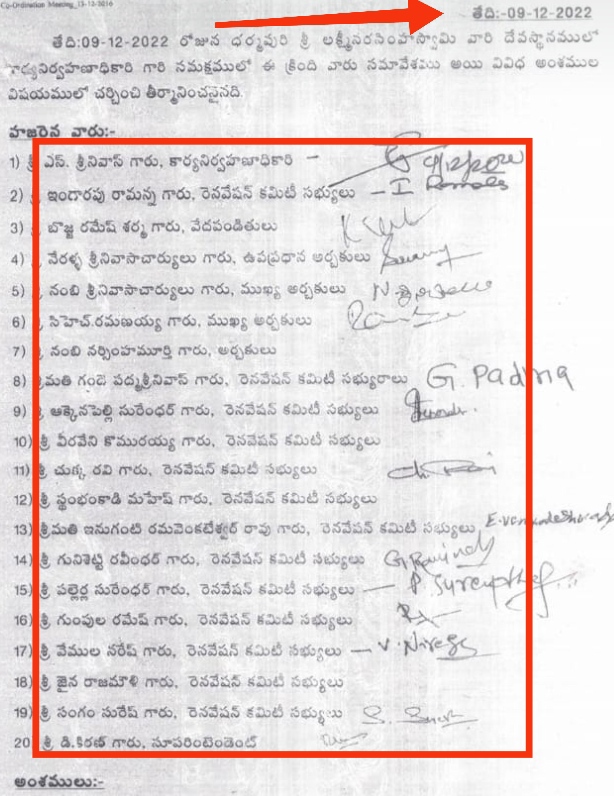 Co-Ordination Meeting_13-12-2016
తేది:-09-12-2022
తేది:09-12-2022 రోజున ధర్మపురి శ్రీ లక్ష్మీనరసింహస్వామి వారి దేవస్థానములో
కార్యనిర్వహణాధికారి గారి సమక్షములో ఈ క్రింది వారు సమావేశమై అయి వివిధ అంశముల
విషయములో చర్చించి తీర్మానించనైనది.
హాజరైన వారు:-
1) శ్రీ ఎస్. శ్రీనివాస్ గారు, కార్యనిర్వహణాధికారి –
2) ఇందారపు రామన్న గారు, రెనవేషన్ కమిటీ సభ్యులు – I Ramala
3) బొజ్జ రమేష్ శర్మ గారు, వేదపండితులు
4) నేరళ్ళ శ్రీనివాసాచార్యులు గారు, ఉపప్రధాన అర్చకులు
5) నంబి శ్రీనివాసాచార్యులు గారు, ముఖ్య అర్చకులు
6) సిహెచ్.రమణయ్య గారు, ముఖ్య అర్చకులు
7) నంబి నర్సింహమూర్తి గారు, అర్చకులు
8) శ్రీమతి గందె పద్మశ్రీనివాస్ గారు, రెనవేషన్ కమిటీ సభ్యురాలు G. Padma
9) అక్కెనపెల్లి సురేందర్ గారు, రెనవేషన్ కమిటీ సభ్యులు
10) శ్రీ వీరవేని కొమురయ్య గారు, రెనవేషన్ కమిటీ సభ్యులు
11) శ్రీ చుక్క రవి గారు, రెనవేషన్ కమిటీ సభ్యులు ch. Ravi
12) శ్రీ స్థంభంకాడి మహేష్ గారు, రెనవేషన్ కమిటీ సభ్యులు
13) శ్రీమతి ఇనుగంటి రమవెంకటేశ్వర్ రావు గారు, రెనవేషన్ కమిటీ సభ్యులు
14) శ్రీ గునిశెట్టి రవీంధర్ గారు, రెనవేషన్ కమిటీ సభ్యులు G Ravindr
15) శ్రీ పల్లెర్ల సురేంధర్ గారు, రెనవేషన్ కమిటీ సభ్యులు –
16) శ్రీ గుంపుల రమేష్ గారు, రెనవేషన్ కమిటీ సభ్యులు
17) శ్రీ వేముల నరేష్ గారు, రెనవేషన్ కమిటీ సభ్యులు – V. Naresh
18) శ్రీ జైన రాజమౌళి గారు, రెనవేషన్ కమిటీ సభ్యులు
19) శ్రీ సంగం సురేష్ గారు, రెనవేషన్ కమిటీ సభ్యులు
20) శ్రీ డి.కిరణ్ గారు, సూపరింటెండెంట్
అంశములు:-